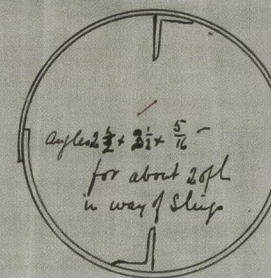 Angles 2½ × 2½ × 5/16
for about 20ft
in way of Slings